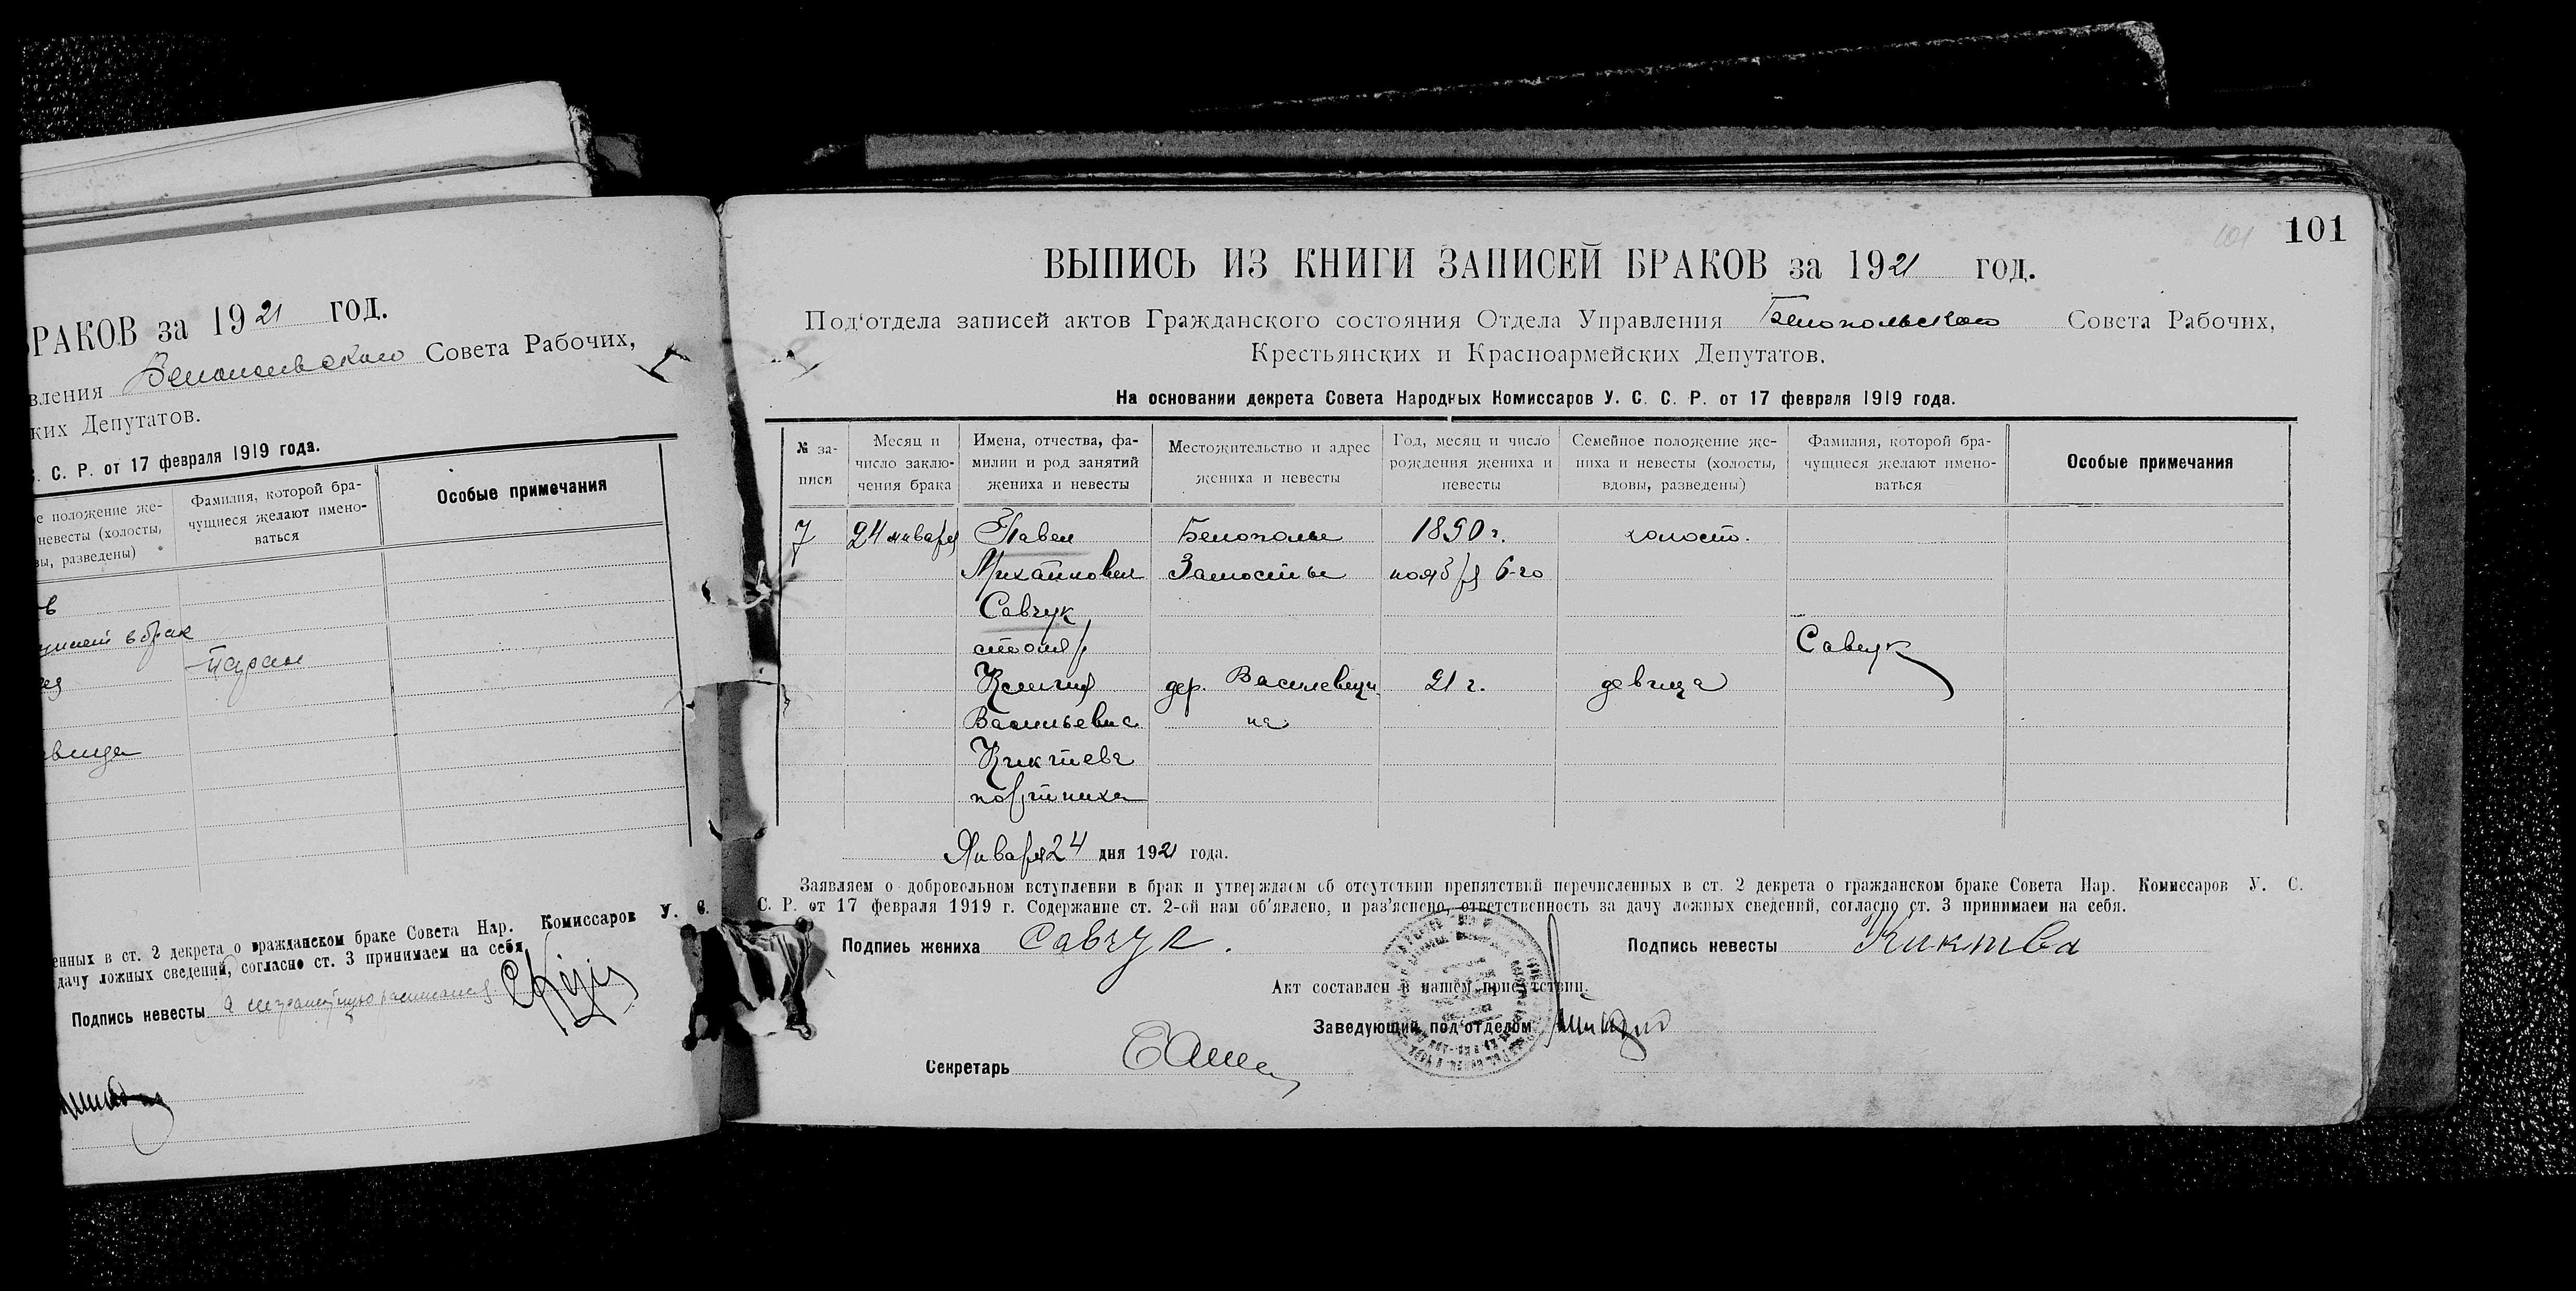 РАКОВ за 1921 год.
вления Белопольского Совета Рабочих,
ких Депутатов.
С. С. Р. от 17 февраля 1919 года.
ое положение же-
невесты (холосты,
вы, разведены)
Фамилия, которой бра-
чущиеся желают имено-
ваться
Особые примечания
в брак
енных в ст. 2 декрета о гражданском браке Совета Нар. Комиссаров У. С.
дачу ложных сведений, согласно ст. 3 принимаем на себя.
Подпись невесты
101
101
ВЫПИСЬ ИЗ КНИГИ ЗАПИСЕЙ БРАКОВ за 1921 год.
Под‘отдела записей актов Гражданского состояния Отдела Управления Белопольского Совета Рабочих,
Крестьянских и Красноармейских Депутатов.
На основании декрета Совета Народных Комиссаров У. С. С. Р. от 17 февраля 1919 года.
№ за-
писи
Месяц и
число заклю-
чения брака
Имена, отчества, фа-
милии и род занятий
жениха и невесты
Местожительство и адрес
жениха и невесты
Год, месяц и число
рождения жениха и
невесты
Семейное положение же-
ниха и невесты (холосты,
вдовы, разведены)
Фамилия, которой бра-
чущиеся желают имено-
ваться
Особые примечания
7 24 января Павел Белополье 1890 г. холост.
Михайлович Замостье ноября 6-го
Савчук
столяр Савчук
Ксения дер. Василевщи 21 г. девица
Васильевна на
Киктева
портниха
Января 24 дня 1921 года.
Заявляем о добровольном вступлении в брак и утверждаем об отсутствии препятствий перечисленных в ст. 2 декрета о гражданском браке Совета Нар. Комиссаров У. С.
С. Р. от 17 февраля 1919 г. Содержание ст. 2-ой нам об‘явлено, и раз‘яснено, ответственность за дачу ложных сведений, согласно ст. 3 принимаем на себя.
Подпись жениха Савчук. Подпись невесты Киктва
Акт составлен в нашем присутствии.
Заведующий под‘отделом
Секретарь